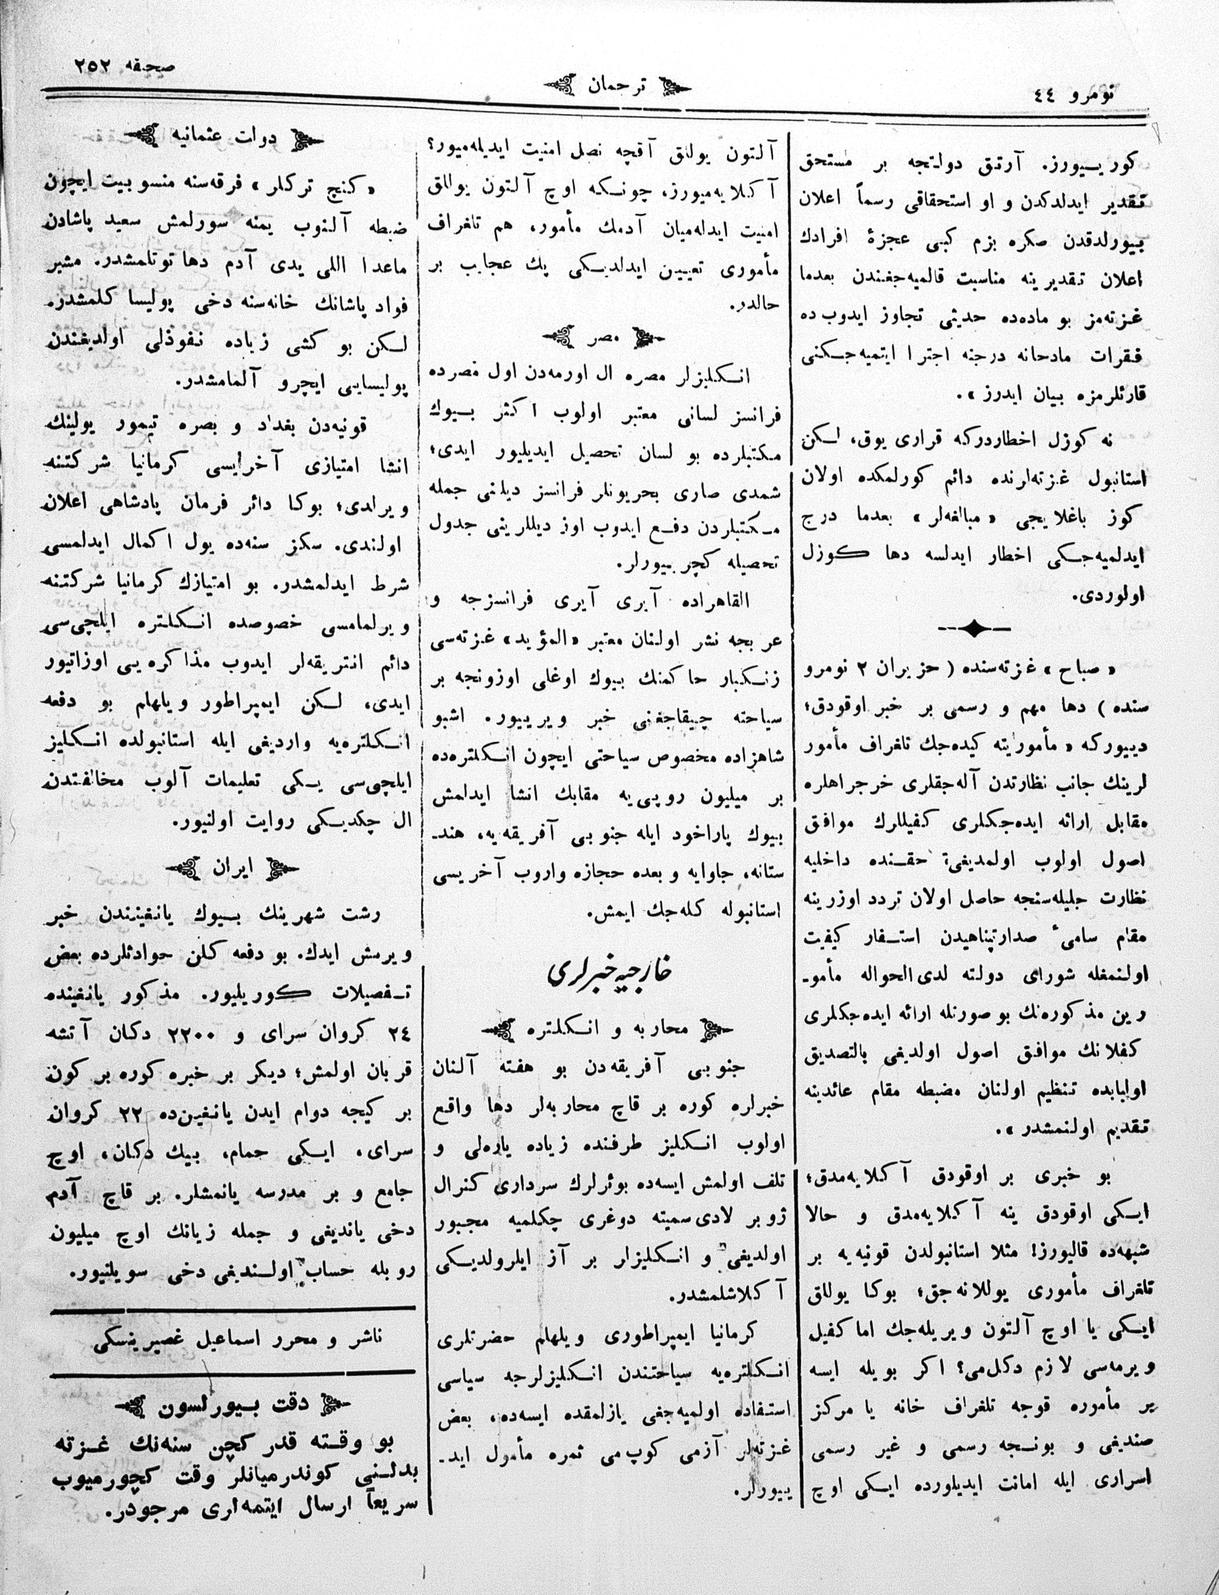 نومرو ٤٤
ترجمان
صحیفه ٢٥٢
كوریيورز. آرتق دولتجه بر مستحق
تقدیر ایدلدكدن و او استحقاقی رسماً اعلان
بیورلدقدن صكره بزم كبی عجزۀ افرادك
اعلان تقدیرینه مناسبت قالمیه‌جغندن بعدما
غزته‌مز بو ماده‌ده حدیثی تجاوز ایدوب ده
فقرات مادحانه درجنه اجترا ایتمیه‌جكنی
قارئلرمزه بیان ایدرز».
نه كوزل اخطاردركه قراری یوق، لكن
استانبول غزته‌لرنده دائم كورلمكده اولان
كوز باغلایجی «مبالغه‌لر» بعدما درج
ایدلمیه‌جكی اخطار ایدلسه دها كوزل
اولوردی.
«صباح» غزته‌سنده (حزیران ٢ نومرو
سنده) دها مهم و رسمی بر خبر اوقودق؛
دییوركه «مأموریته كیده‌جك تلغراف مأمور
لرینك جانب نظارتدن آله‌جقلری خرجراهلره
مقابل ارائه ایده‌جكلری كفیللرك موافق
اصول اولوب اولمدیغی حقنده داخلیه
نظارت جلیله‌سنجه حاصل اولان تردد اوزرینه
مقام سامیٔ صدارتپناهیدن استفار كیفیت
اولنمغله شورای دولته لدی‌الحواله مأمو-
رین مذكوره‌نك بو صورتله ارائه ایده‌جكلری
كفلانك موافق اصول اولدیغی بالتصدیق
اولبابده تنظیم اولنان مضبطه مقام عائدینه
تقدیم اولنمشدر».
بو خبری بر اوقودق آكلایه‌مدق؛
ایكی اوقودق ینه آكلایه‌مدق و حالا
شبهه‌ده قالیورز! مثلا استانبولدن قونیه‌یه بر
تلغراف مأموری یوللانه‌جق؛ بوكا یوللق
ایكی یا اوچ آلتون ویریله‌جك اما كفیل
ویرمه‌سی لازم دكل‌می؟ اكر بویله ایسه
بر مأموره قوجه تلغراف خانه یا مركز
صندیغی و بونجه رسمی و غیر رسمی
اسراری ایله امانت ایدیلورده ایكی اوچ
آلتون یوللق آقچه نصل امنیت ایدیله‌میور؟
آكلایه‌میورز، چونكه اوچ آلتون یوللق
امنیت ایدله‌میان آدمك مأمور، هم تلغراف
مأموری تعیین ایدلدیكی پك عجایب بر
حالدر.
مصر
انكلیزلر مصره ال اورمه‌دن اول مصرده
فرانسز لسانی معتبر اولوب اكثر بیوك
مكتبلرده بو لسان تحصیل ایدیلیور ایدی؛
شمدی صاری بحریونلر فرانسز دیلنی جمله
مكتبلردن دفع ایدوب اوز دیللرینی جدول
تحصیله كچریيورلر.
القاهراده آیری آیری فرانسزجه و
عربجه نشر اولنان معتبر «المؤید» غزته‌سی
زنكبار حاكمنك بیوك اوغلی اوزونجه بر
سیاحته چیقاجغنی خبر ویرییور. اشبو
شاهزاده مخصوص سیاحتی ایچون انكلتره‌ده
بر میلیون روپی‌یه مقابك انشا ایدلمش
بیوك پاراخود ایله جنوبی آفریقه‌یه، هند-
ستانه، جاوایه و بعده حجازه واروب آخریسی
استانبوله كله‌جك ایمش.
خارجیه خبرلری
محاربه و انكلتره
جنوبی آفریقه‌دن بو هفته آلنان
خبرلره كوره بر قاچ محاربه‌لر دها واقع
اولوب انكلیز طرفنده زیاده یاره‌لی و
تلف اولمش ایسه‌ده بوئرلرك سرداری كنرال
ژوبر لادی‌سمیته دوغری چكلمیه مجبور
اولدیغی و انكلیزلر بر آز ایلرولدیكی
آكلاشلمشدر.
كرمانیا ایمپراطوری ویلهلم حضرتلری
انكلتره‌یه سیاحتندن انكلیزلرجه سیاسی
استفاده اولمیه‌جغی یازلمقده ایسه‌ده، بعض
غزته‌لر آزمی كوپ‌می ثمره مأمول اید-
ییورلر.
دولت عثمانیه
«كنچ تركلر» فرقه‌سنه منسوبیت ایچون
ضبطه آلنوب یمنه سورلمش سعید پاشادن
ماعدا اللی یدی آدم دها توتلمشدر. مشیر
فواد پاشانك خانه‌سنه دخی پولیسا كلمشدر.
لكن بو كشی زیاده نفوذلی اولدیغندن
پولیسایی ایچرو آلمامشدر.
قونیه‌دن بغداد و بصره تیمور یولینك
انشا امتیازی آخرایسی كرمانیا شركتنه
ویرلدی؛ بوكا دائر فرمان پادشاهی اعلان
اولندی. سكز سنه‌ده یول اكمال ایدلمسی
شرط ایدلمشدر. بو امتیازك كرمانیا شركتنه
ویرلمامسی خصوصده انكلتره ایلچی‌سی
دائم انتریقه‌لر ایدوب مذاكره‌یی اوزاتیور
ایدی، لكن ایمپراطور ویلهلم بو دفعه
انكلتره‌یه واردیغی ایله استانبولده انكلیز
ایلچی‌سی یكی تعلیمات آلوب مخالفتدن
ال چكدیكی روایت اولنیور.
ایران
رشت شهرینك بیوك یانغینندن خبر
ویرمش ایدك. بو دفعه كلن حوادثلرده بعض
تفصیلات كوریلیور. مذكور یانغینده
٢٤ كروان سرای و ٢٢٠٠ دكان آتشه
قربان اولمش؛ دیكر بر خبره كوره بر كون
بر كیجه دوام ایدن یانغین‌ده ٢٢ كروان
سرای، ایكی حمام، بیك دكان، اوچ
جامع و بر مدرسه یانمشلر. بر قاچ آدم
دخی یاندیغی و جمله زیانك اوچ میلیون
روبله حساب اولندیغی دخی سویلنیور.
ناشر و محرر اسماعیل غصپرینسكی
دقت بیورلسون
بو وقته قدر كچن سنه‌نك غزته
بدلنی كوندرمیانلر وقت كچورمیوب
سریعاً ارسال ایتمه‌لری مرجودر.